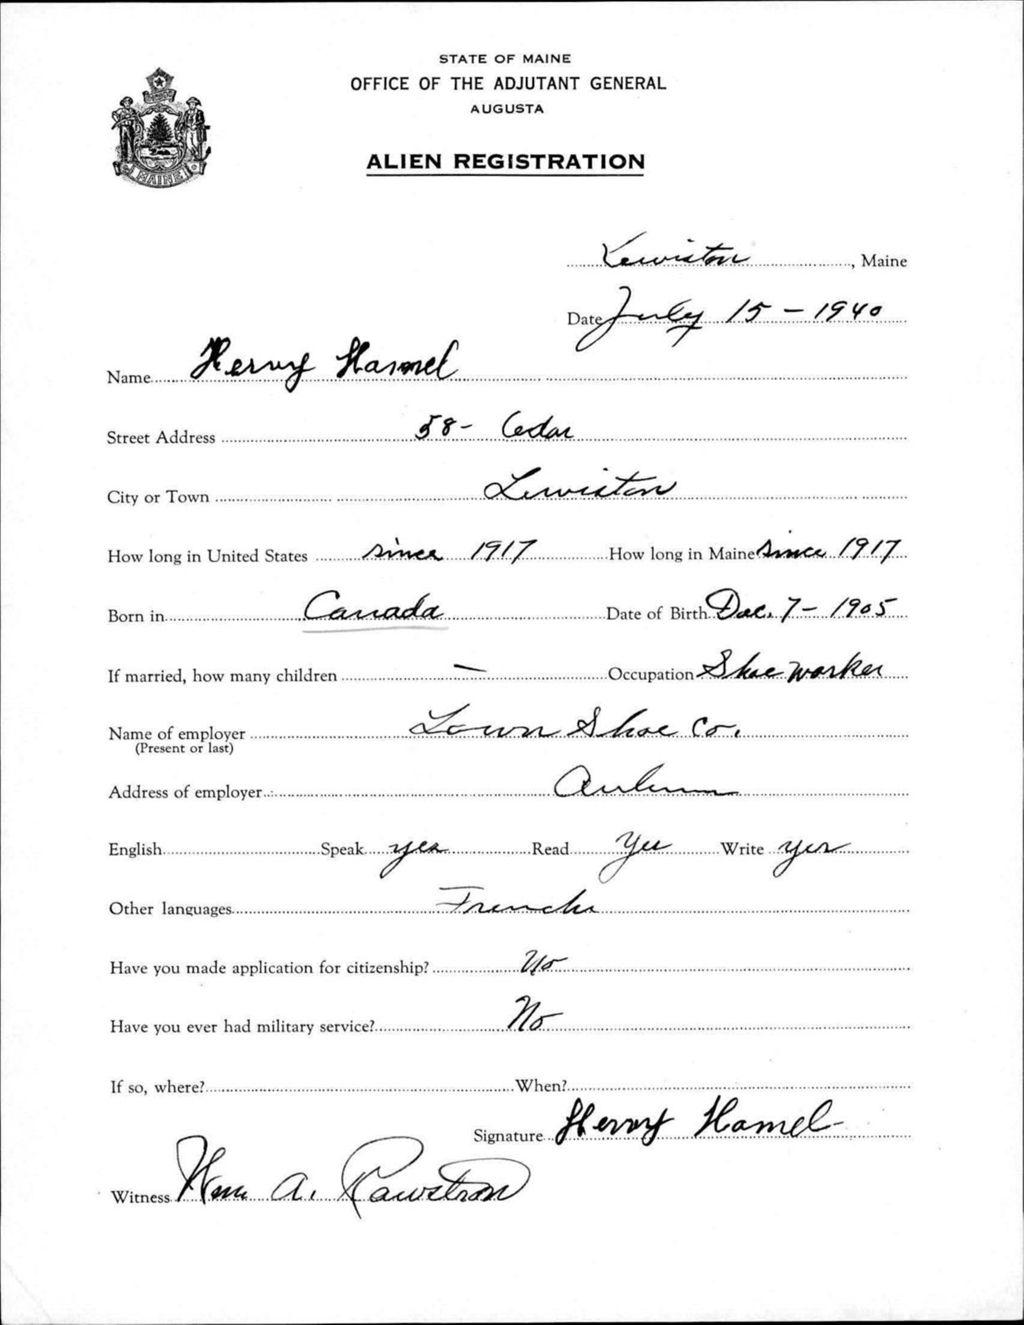 STATE OF MAINE
OFFICE OF THE ADJUTANT GENERAL
AUGUSTA
ALIEN REGISTRATION
MAINE
Lewiston, Maine
Date July 15 - 1940
Name Hervy Hamel
Street Address 58 - Cedar
City or Town Lewiston
How long in United States since 1917 How long in Maine since 1917
Born in Canada Date of Birth Dec. 7 - 1905
If married, how many children — Occupation Shoe worker
Name of employer Lown Shoe Co.
(Present or last)
Address of employer Auburn
English Speak yes Read Yes Write yes
Other languages French
Have you made application for citizenship? No
Have you ever had military service? No
If so, where? When?
Signature Hervy Hamel
Witness Wm A. Rawstron